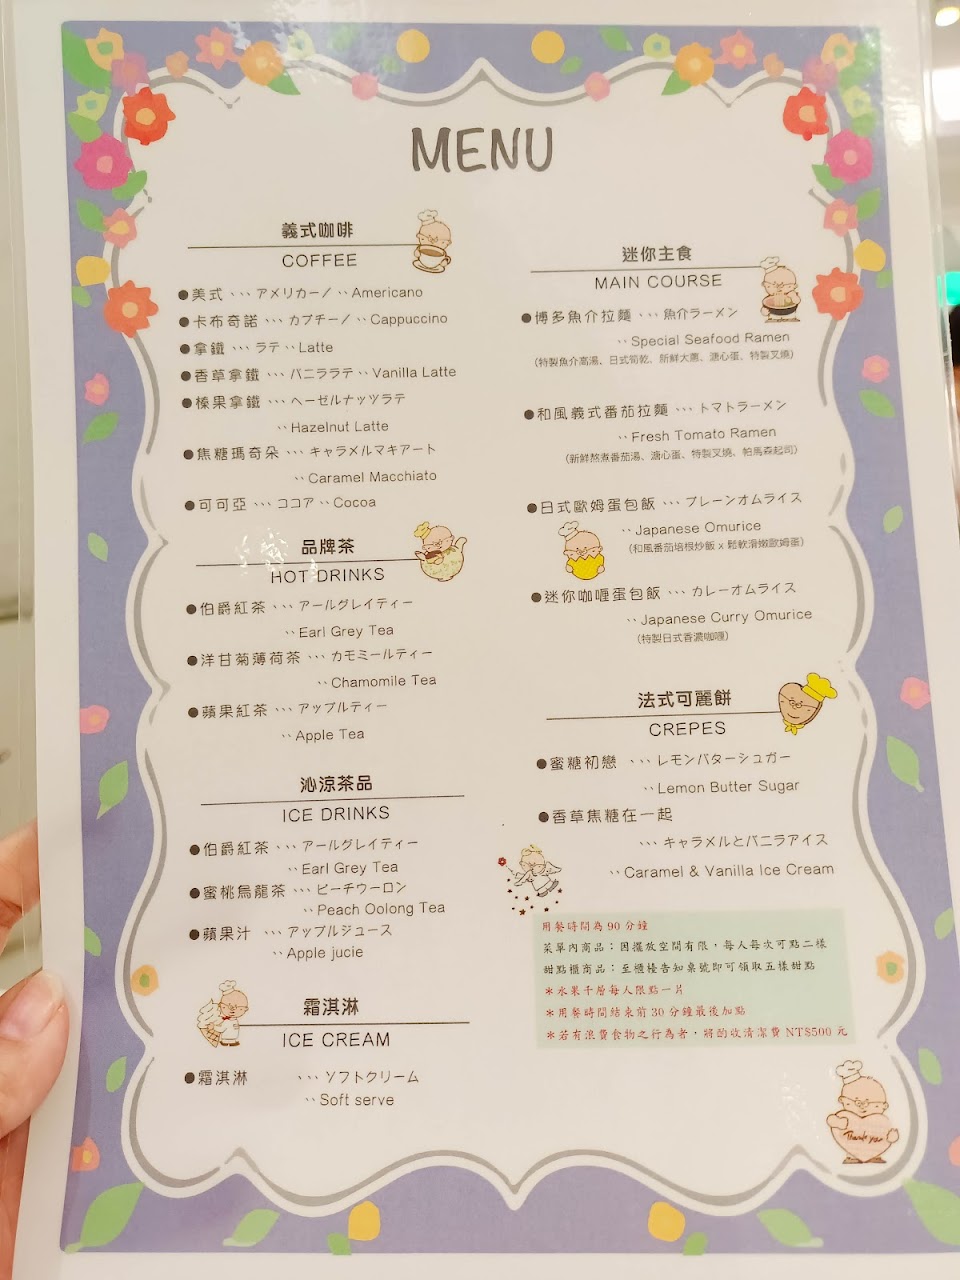 MENU
義式咖啡
COFFEE
●美式 ･･･ アメリカーノ ･･ Americano
●卡布奇諾 ･･･ カプチーノ ･･ Cappuccino
●拿鐵 ･･･ ラテ ･･ Latte
●香草拿鐵 ･･･ バニララテ ･･ Vanilla Latte
●榛果拿鐵 ･･･ ヘーゼルナッツラテ
･･ Hazelnut Latte
●焦糖瑪奇朵 ･･･ キャラメルマキアート
･･ Caramel Macchiato
●可可亞 ･･･ ココア ･･ Cocoa
品牌茶
HOT DRINKS
●伯爵紅茶 ･･･ アールグレイティー
･･ Earl Grey Tea
●洋甘菊薄荷茶 ･･･ カモミールティー
･･ Chamomile Tea
●蘋果紅茶 ･･･ アップルティー
･･ Apple Tea
沁涼茶品
ICE DRINKS
●伯爵紅茶 ･･･ アールグレイティー
･･ Earl Grey Tea
●蜜桃烏龍茶 ･･･ ピーチウーロン
･･ Peach Oolong Tea
●蘋果汁 ･･･ アップルジュース
･･ Apple jucie
霜淇淋
ICE CREAM
●霜淇淋 ･･･ ソフトクリーム
･･ Soft serve
迷你主食
MAIN COURSE
●博多魚介拉麵 ･･･ 魚介ラーメン
･･ Special Seafood Ramen
(特製魚介高湯、日式筍乾、新鮮大蔥、溏心蛋、特製叉燒)
●和風義式番茄拉麵 ･･･ トマトラーメン
･･ Fresh Tomato Ramen
(新鮮熬煮番茄湯、溏心蛋、特製叉燒、帕馬森起司)
●日式歐姆蛋包飯 ･･･ プレーンオムライス
･･ Japanese Omurice
(和風番茄培根炒飯 x 鬆軟滑嫩歐姆蛋)
●迷你咖喱蛋包飯 ･･･ カレーオムライス
･･ Japanese Curry Omurice
(特製日式香濃咖喱)
法式可麗餅
CREPES
●蜜糖初戀 ･･･ レモンバターシュガー
･･ Lemon Butter Sugar
●香草焦糖在一起
･･･ キャラメルとバニラアイス
･･ Caramel & Vanilla Ice Cream
用餐時間為 90 分鐘
菜單內商品：因擺放空間有限，每人每次可點二樣
甜點櫃商品：至櫃檯告知桌號即可領取五樣甜點
＊水果千層每人限點一片
＊用餐時間結束前 30 分鐘最後加點
＊若有浪費食物之行為者，將酌收清潔費 NT$500 元
Thank you